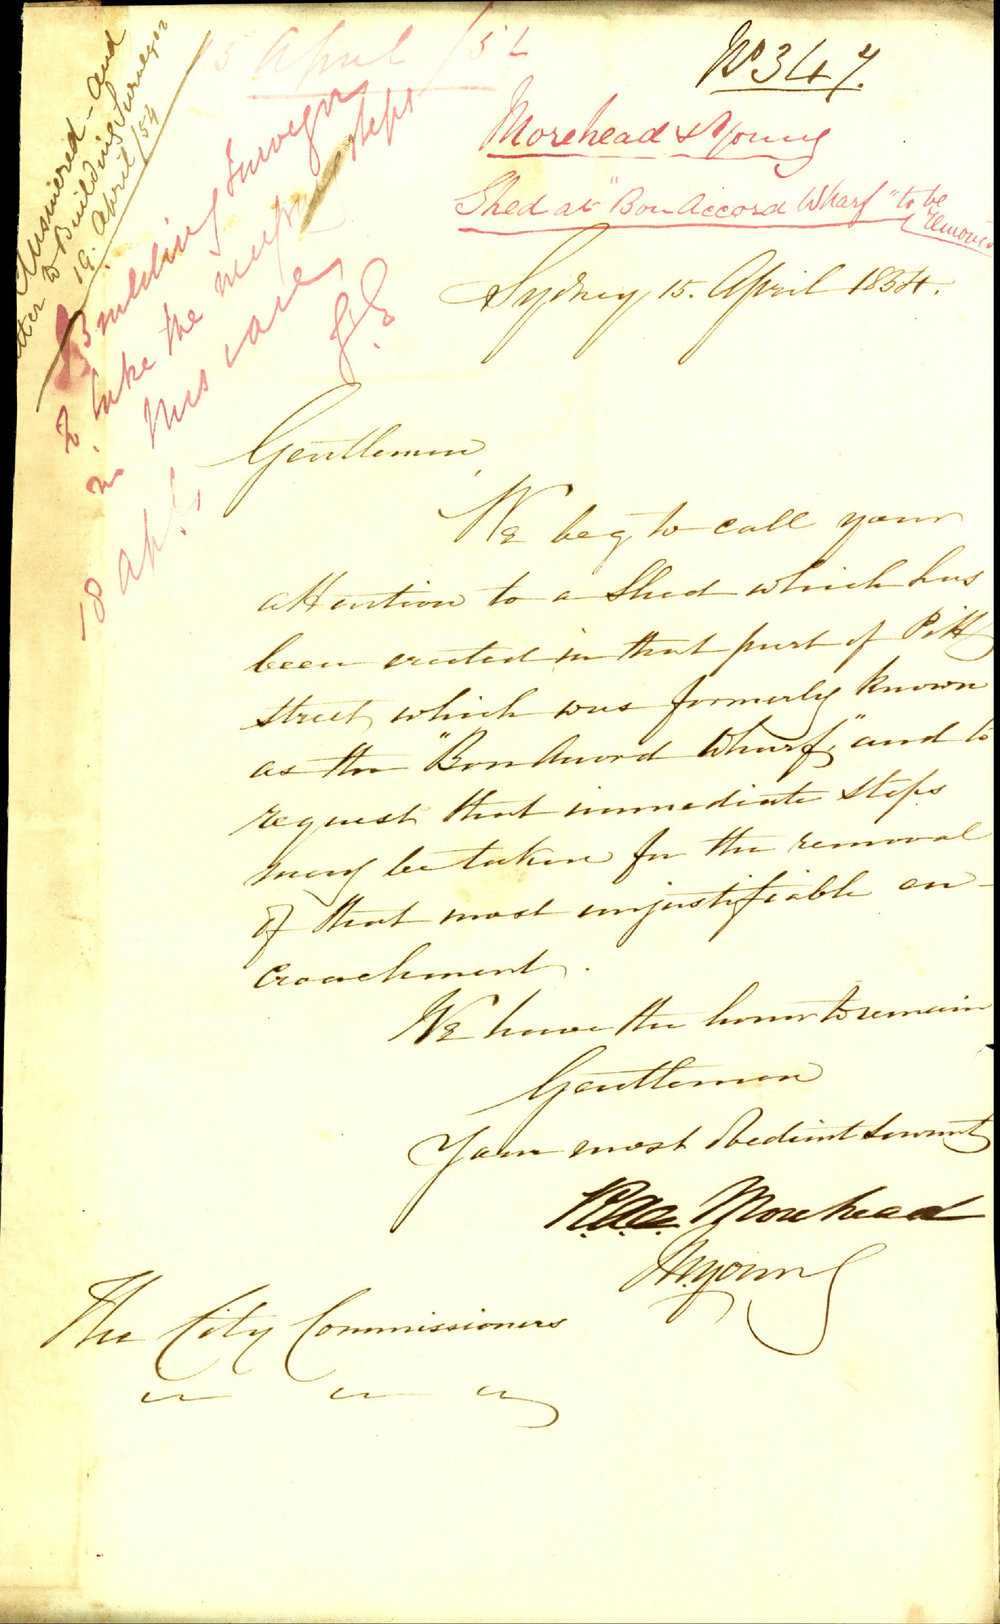 15 April /54
No 347.
Morehead & Young
Shed at "Bon Accord Wharf" to be
removed
Answered - and
letter to Building Surveyor
19. April /54
Building Surveyor
to take the steps
in this case
18 Apl.
Sydney 15. April 1854.
Gentlemen,
We beg to call your
attention to a Shed which has
been erected in that part of Pitt
street, which was formerly known
as the "Bon Accord Wharf," and to
request that immediate steps
may be taken for the removal
of that most unjustifiable en-
croachment.
We have the honor to remain
Gentlemen
Your most obedient servants
R.A.A. Morehead
M. Young
The City Commissioners